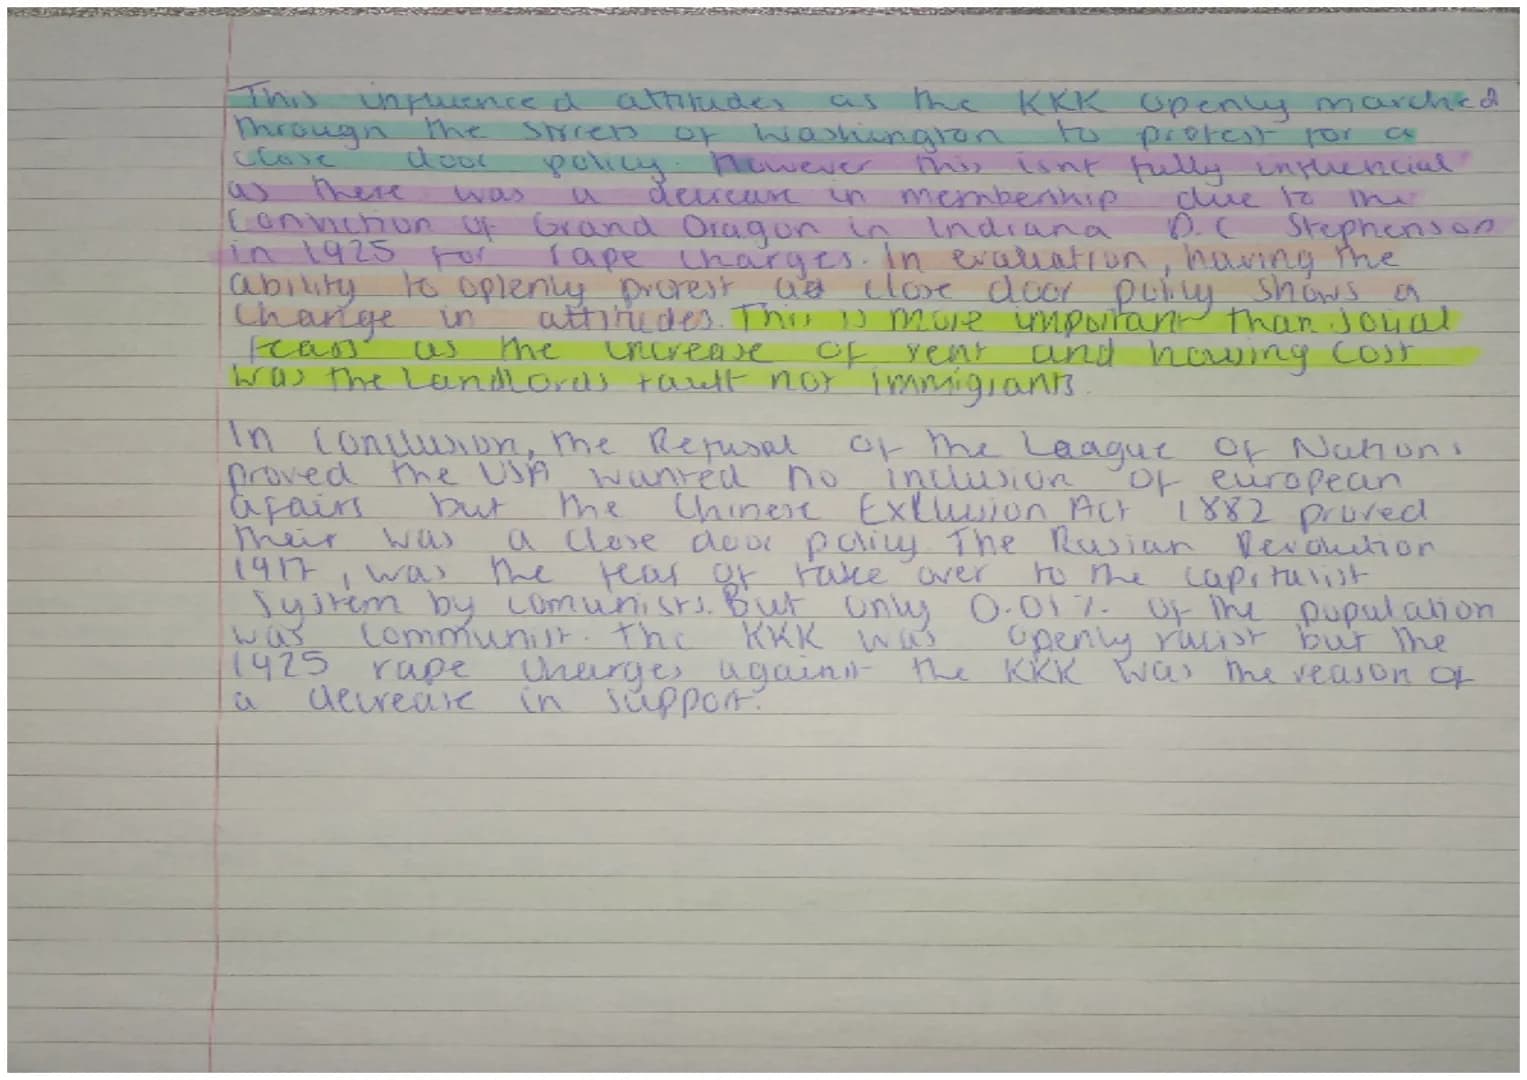 This influenced attitudes as the KKK openly marched
through the streets of Washington to protest for a
close door policy. However this isnt fully influencial
as there was a decrease in membership due to the
conviction of Grand Dragon in Indiana D.C Stephenson
in 1925 for rape charges. In evaluation, having the
ability to oplenly protest a close door policy shows a
change in attitudes. This is more important than social
fears as the increase of rent and housing cost
was the landlords fault not immigrants.
In conclusion, the Refusal of the League of Nations
proved the USA wanted no inclusion of european
afairs but the Chinese Exclusion Act 1882 proved
their was a close door policy. The Russian Revolution
1917, was the fear of take over to the capitalist
system by comunists. But only 0.01% of the population
was communist. the KKK was openly racist but the
1925 rape charges against the KKK was the reason of
a decrease in support.